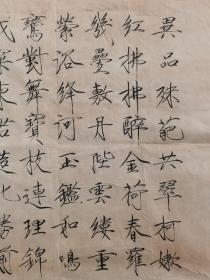 異品殊葩共翠柯嫩
紅拂拂醉金荷春羅
幾疊敷丹陛雲縷重
縈浴絳河玉鑑和鳴
鸞對舞寶枝連理錦
成窠東君造化勝前